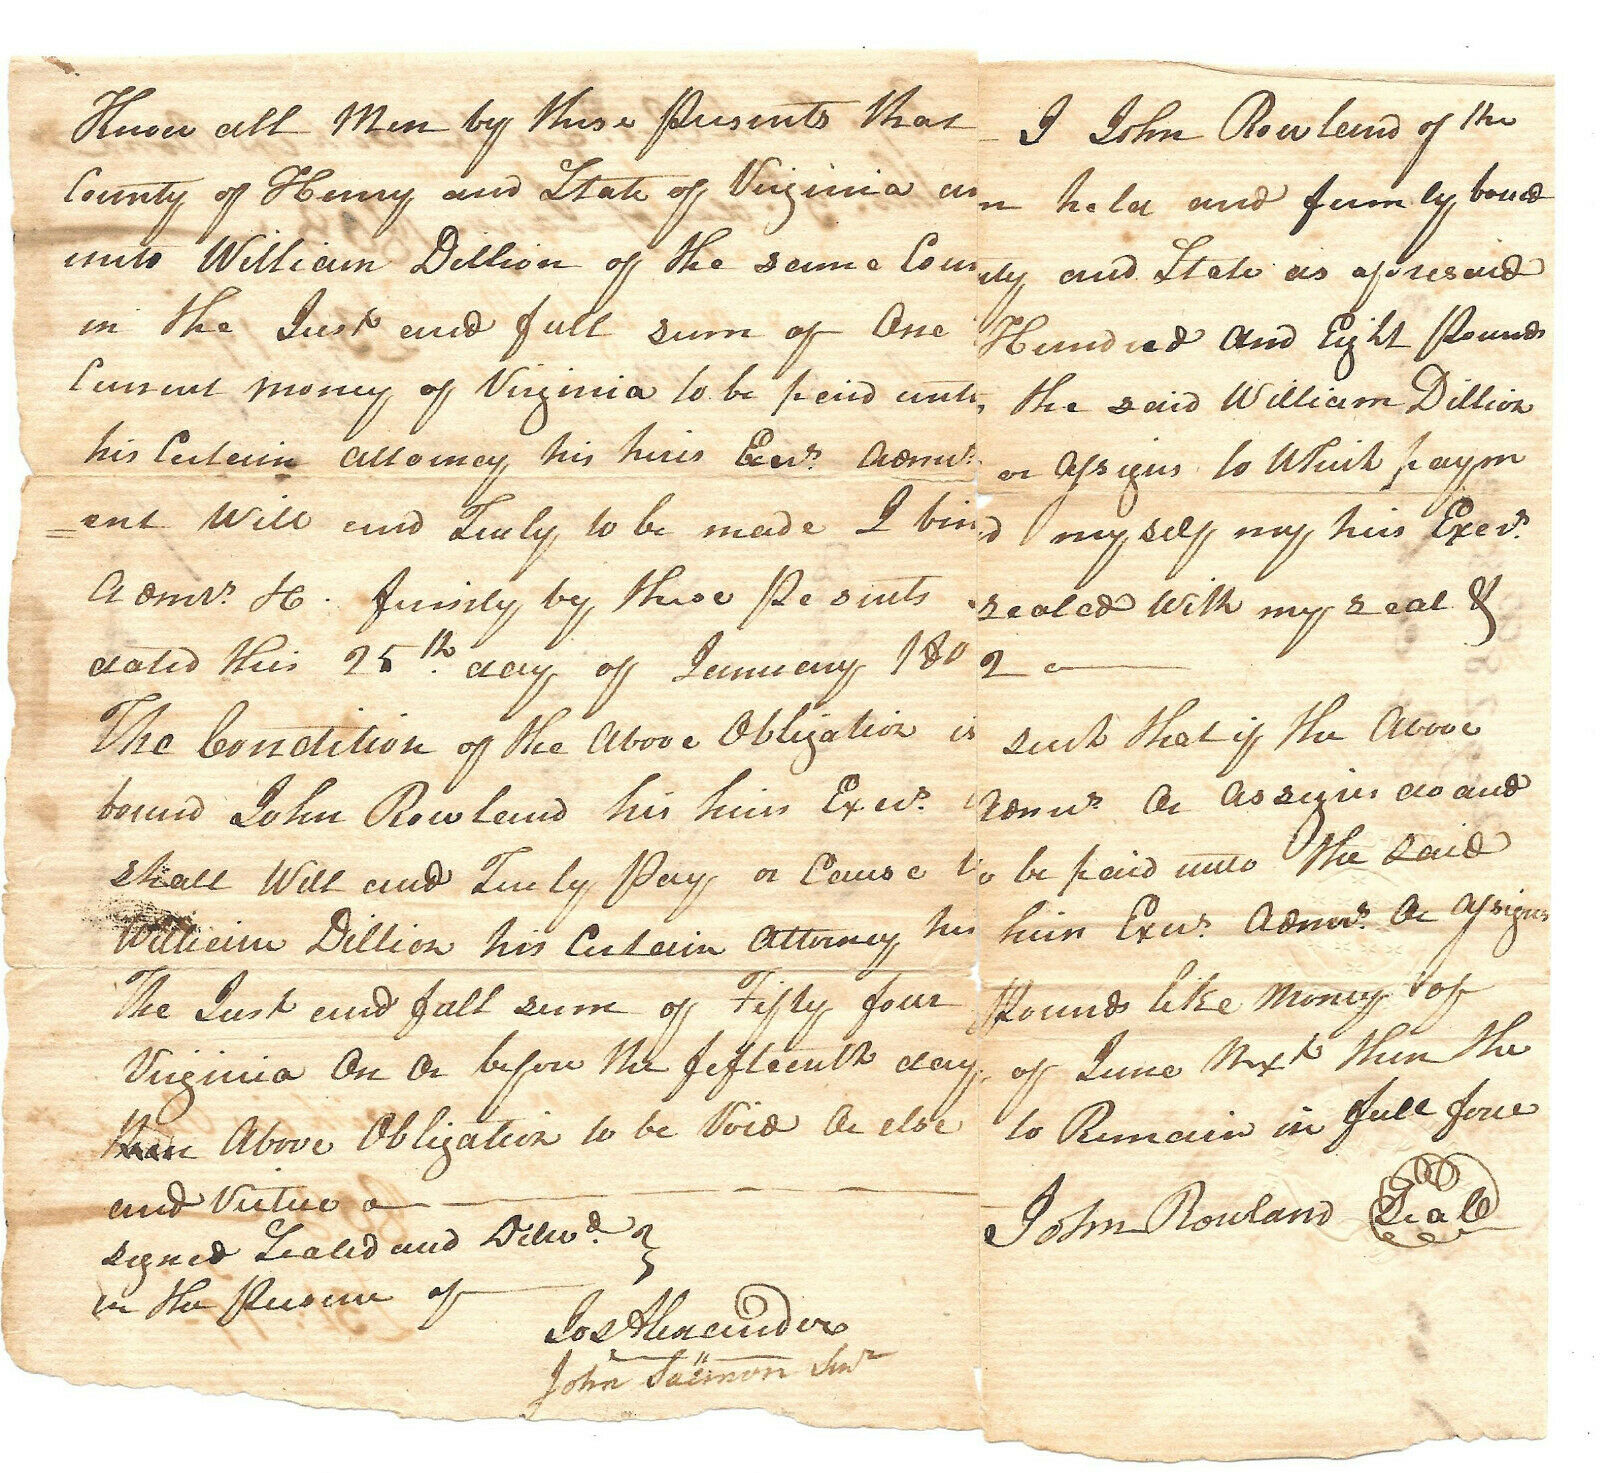 Know all Men by these Presents that I John Rowland of the
County of Henry and State of Virginia am held and firmly bound
unto William Dillion of the same County and State as aforesaid
in the Just and full sum of One Hundred and Eight Pounds
Current money of Virginia to be paid unto the said William Dillion
his Certain attorney his hiris Exers. Admrs. or assigns to Which paym
=ent Will and Truly to be made I bind myself my hiis Exers.
Admrs. &c. firmly by these Pesents sealed With my seal &
dated this 25th. day of January 1802
The Condition of the Above Obligation is such that if the Above
bound John Rowland his hiirs Exers. Admrs. Or assigns do and
shall Will and Truly Pay or Cause to be paid unto The said
William Dillion his Certain Attorney his hiirs Exers. Admrs. Or assigns
The Just and full sum of Fifty four Pounds like Money of
Virginia On Or before the fifteenth day of June Next then the
Above Obligation to be Void Or else to Remain in full force
and Virtue
signed Sealed and Delivd.
in the Presence of
John Rowland Seal
Jos Alexander
John Salmon Senr